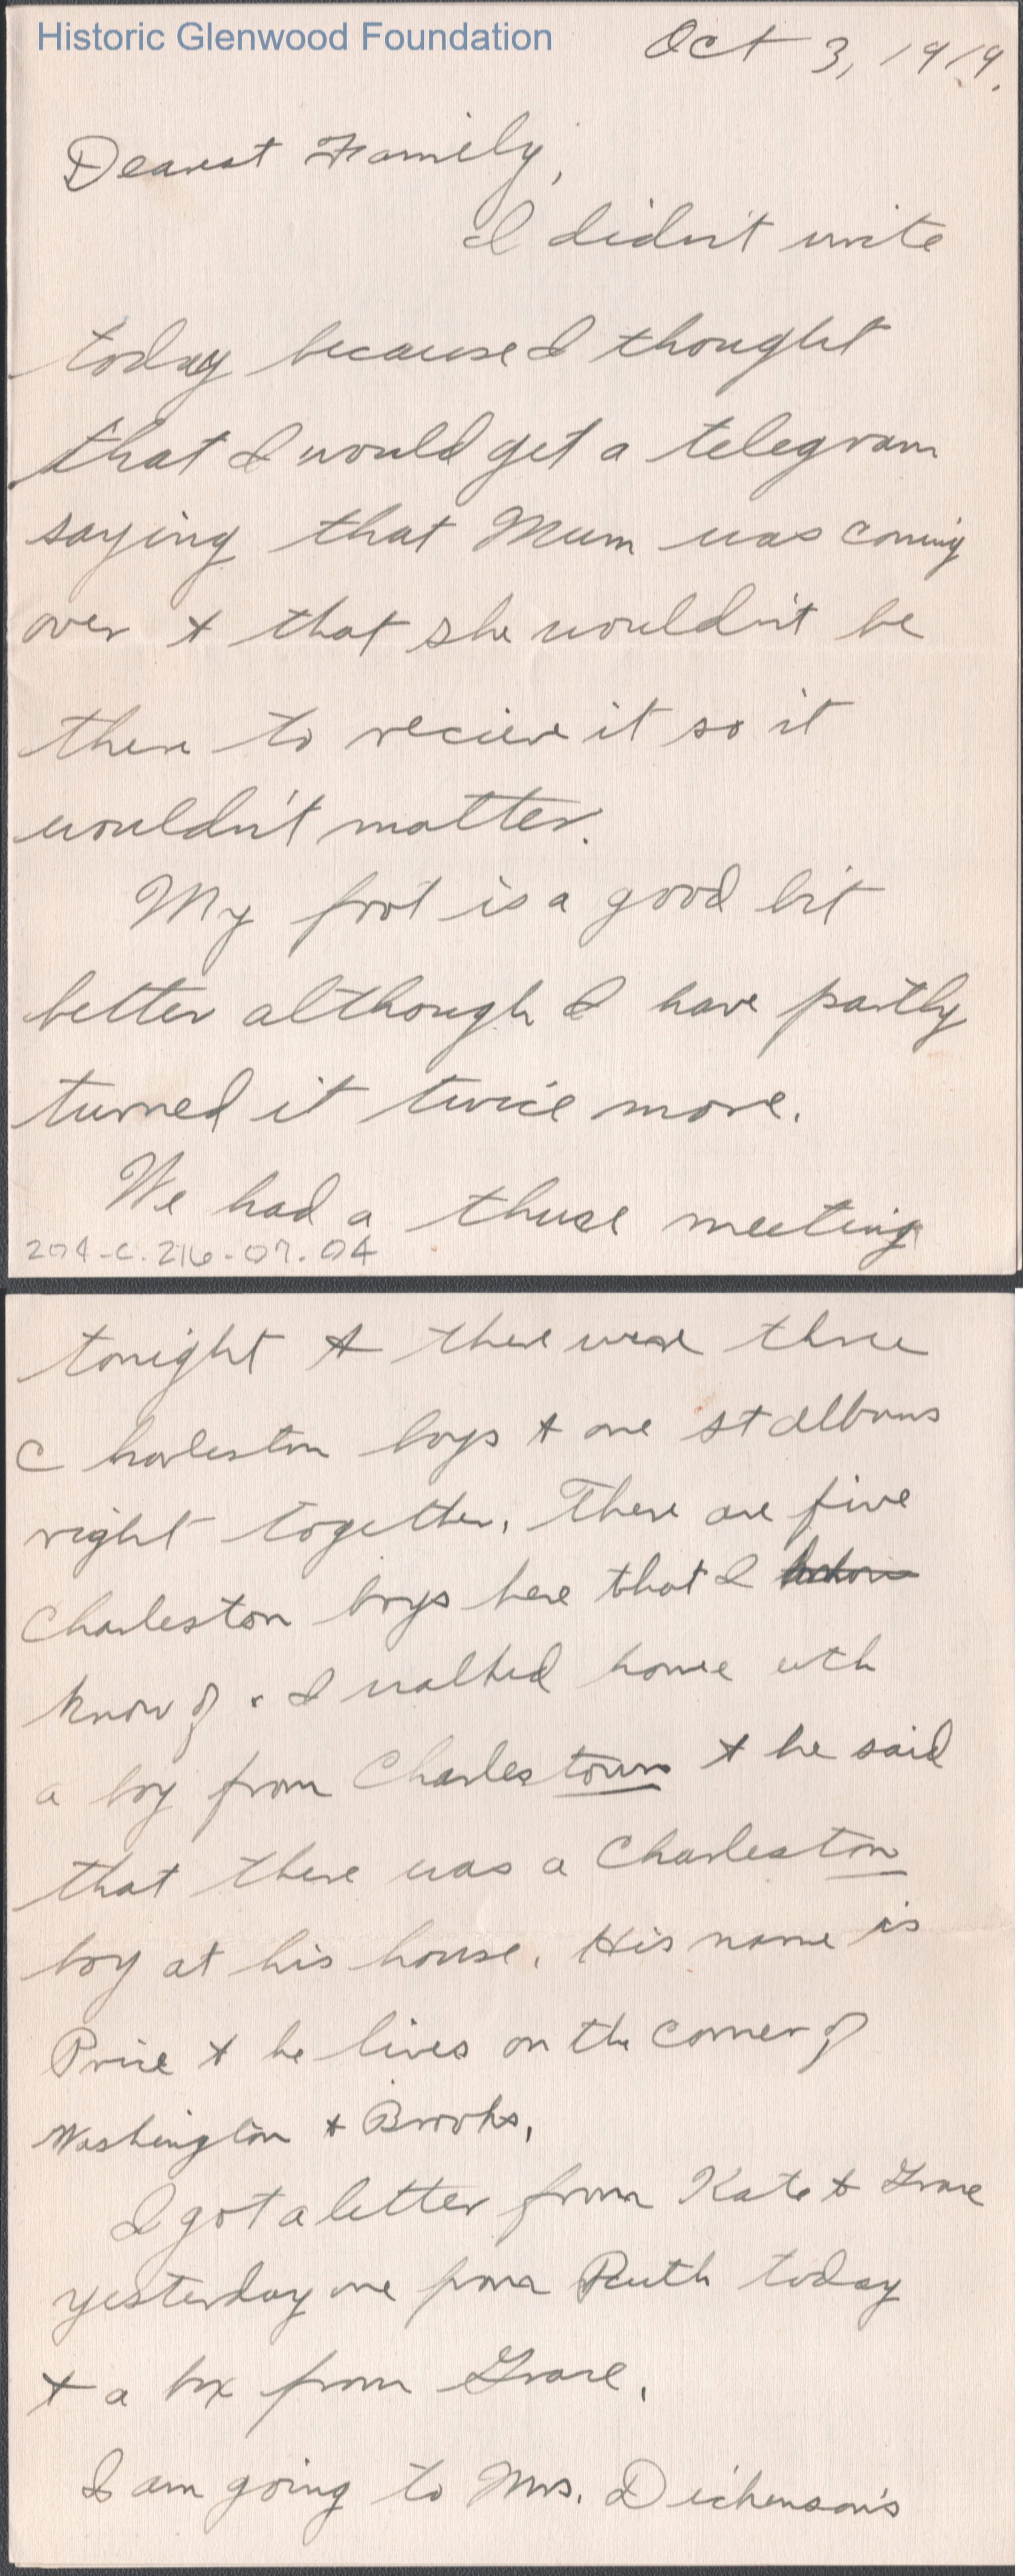 Historic Glenwood Foundation
Oct 3, 1919.
Dearest Family,
I didn't write
today because I thought
that I would get a telegram
saying that Mum was coming
over & that she wouldn't be
there to recieve it so it
wouldn't matter.
My foot is a good bit
better although I have partly
turned it twice more.
We had a thuse meeting
204-C.216-07.04
tonight & there were three
Charleston boys & one St Albans
right together. There are five
Charleston boys here that I
know of. I walked home with
a boy from Charlestown & he said
that there was a Charleston
boy at his house. His name is
Price & he lives on the corner of
Washington & Brooks.
I got a letter from Kate & Grace
yesterday one from Ruth today
& a box from Grace.
I am going to Mrs. Dickenson's